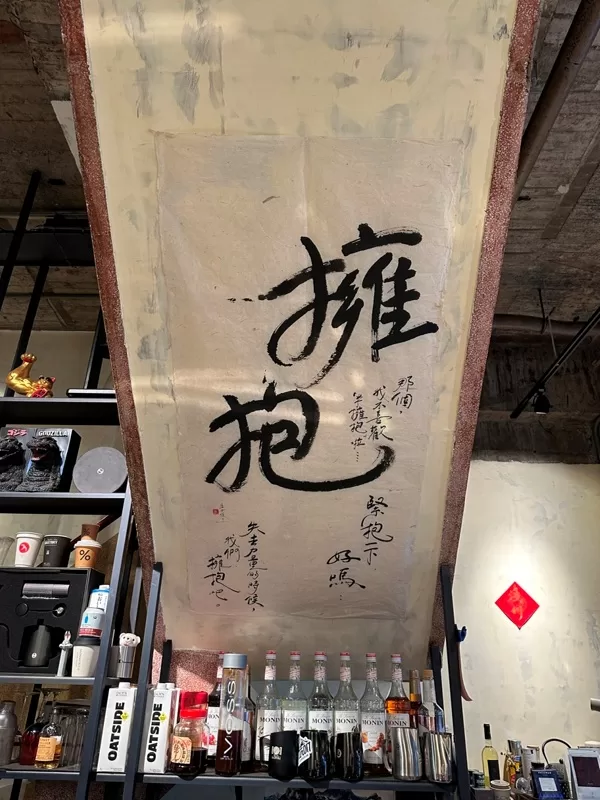 擁
抱
那個，
我不喜歡
擁抱啦…
緊抱一下
好嗎…
失去力量的時候，
我們
擁抱吧。
ゴジラ
GODZILLA
%
OATSIDE
OATSIDE
VOSS
MONIN
MONIN
MONIN
MONIN
MONIN
MONIN